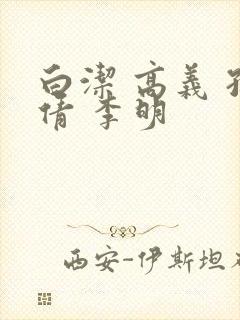 白潔 高義
倩 李明
西安-伊斯坦